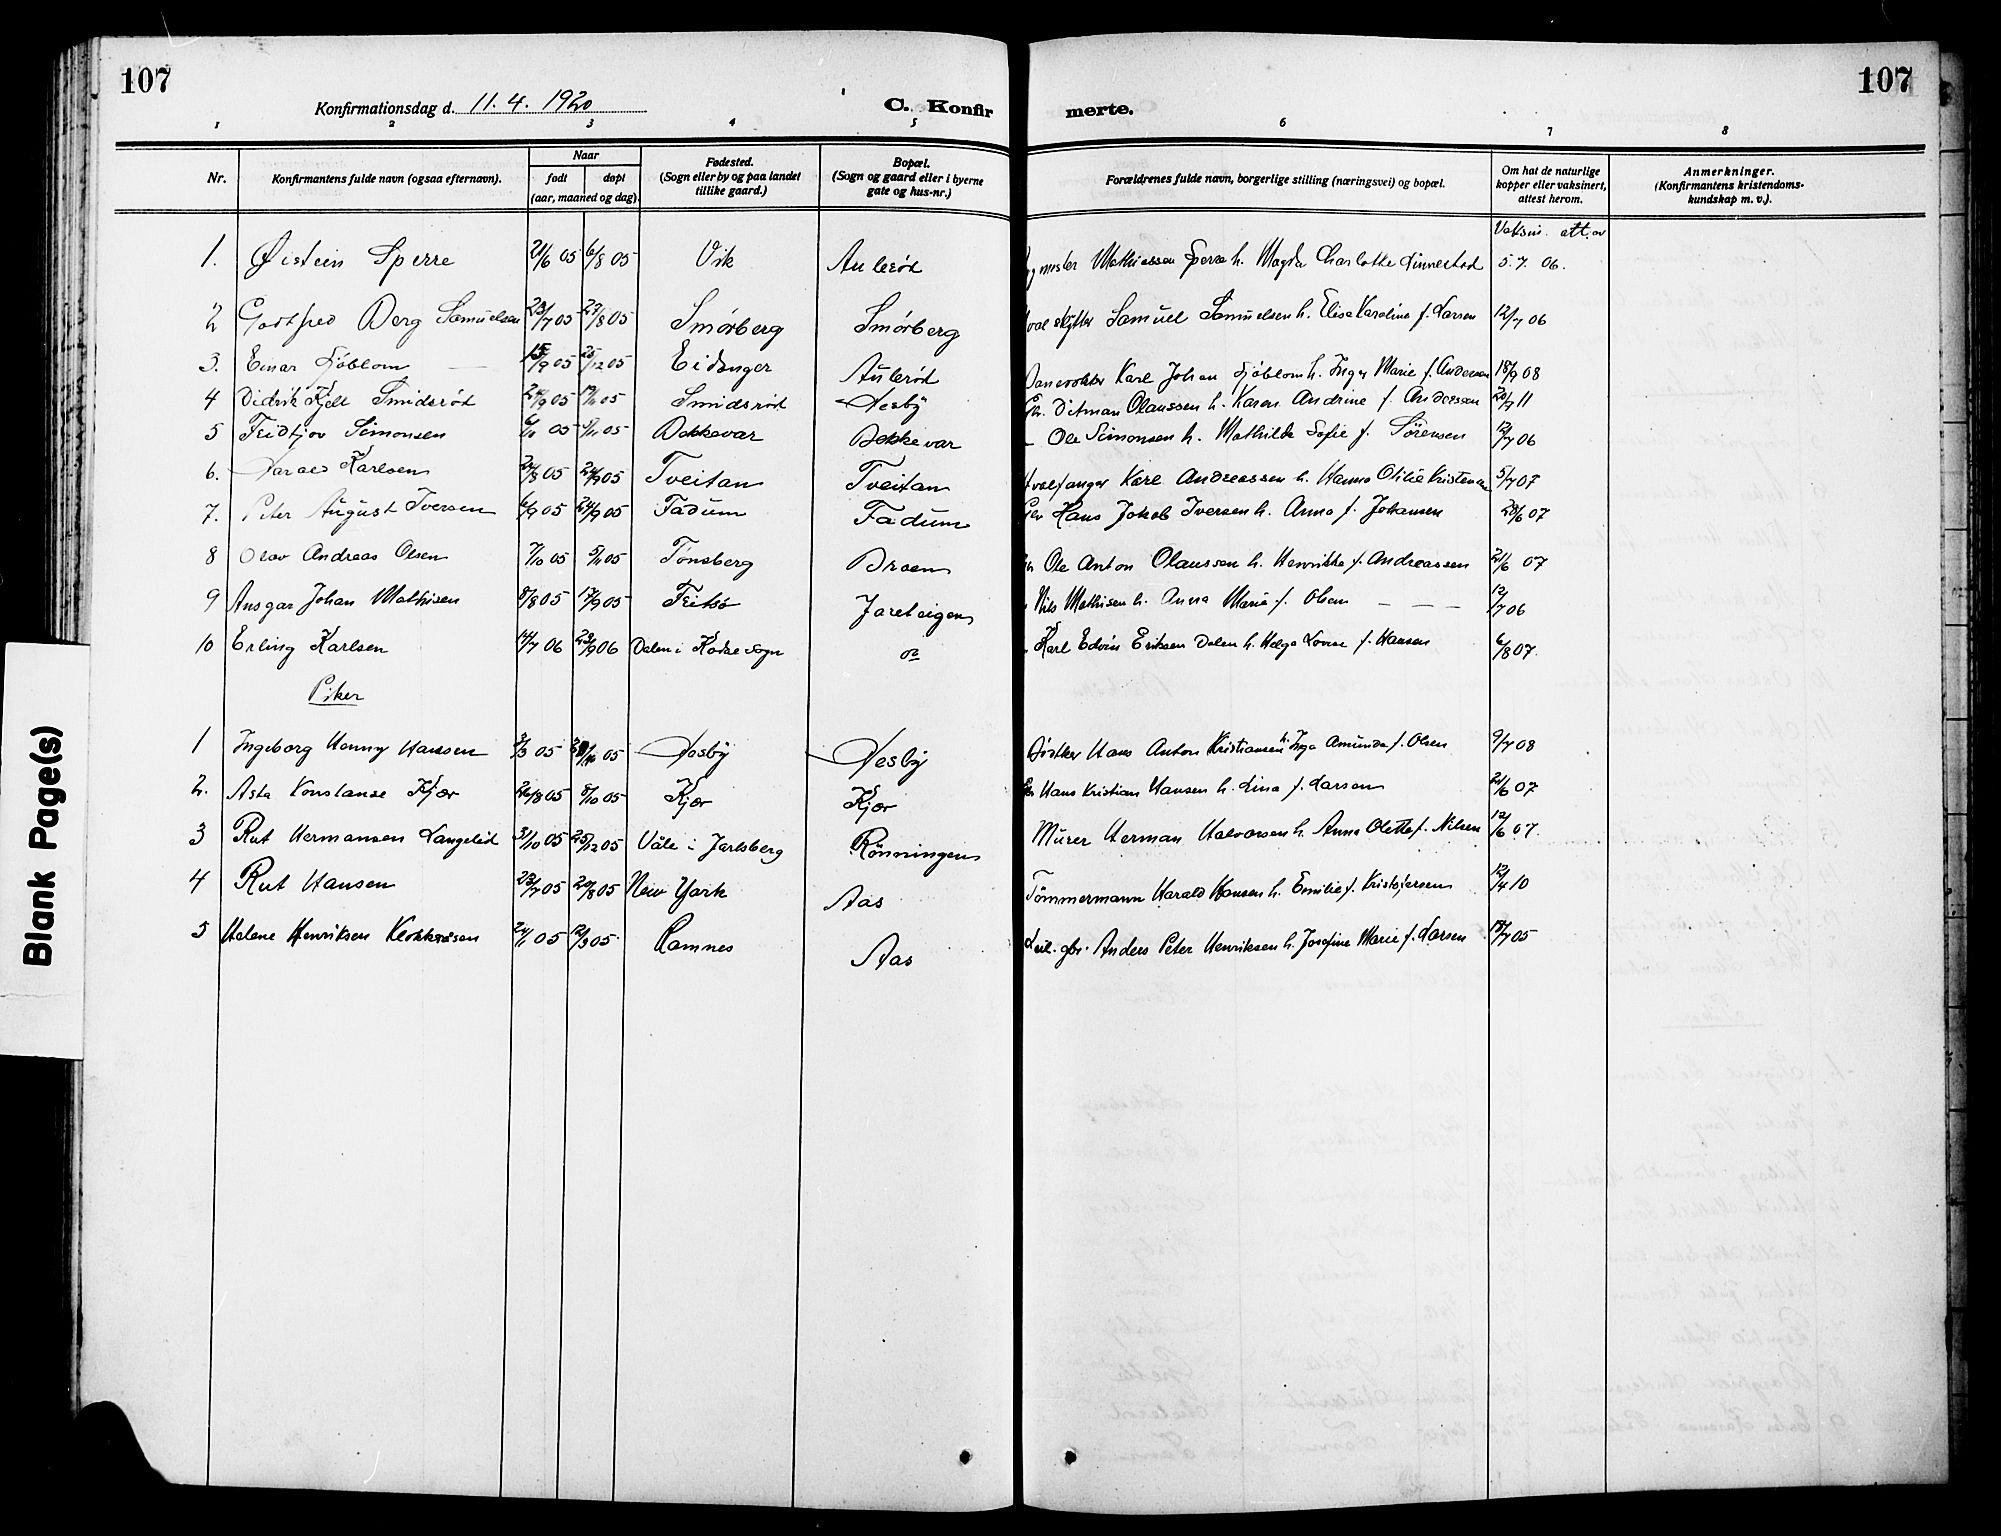 107
107
Konfirmationsdag d. 11.4.1920
C. Konfirmerte.
1 2 3 4 5 6 7 8
Nr.
Konfirmantens fulde navn (ogsaa efternavn).
Naar
født
døpt
(aar, maaned og dag).
Fødested.
(Sogn eller by og paa landet
tillike gaard.)
Bopæl.
(Sogn og gaard eller i byerne
gate og hus-nr.)
Forældrenes fulde navn, borgerlige stilling (næringsvei) og bopæl.
Om hat de naturlige
kopper eller vaksinert,
attest herom.
Anmerkninger.
(Konfirmantens kristendoms-
kundskap m. v.).
Vaksin. att. av
1. Øistein Sperre 21/6 05 6/8 05 Vik Aulerød Mathiassen Sperre h. Magda Charlotte Linnestad 5.7.06.
2 Gotfred Berg Samuelsen 23/7 05 27/8 05 Smørberg Smørberg Samuel Samuelsen h. Elise Karoline f. Larsen 12/7 06
3. Einar Sjöblom 15/9 05 25/12 05 Eidanger Aulerød Karl Johan Sjöblom h. Inger Marie f. Andersen 18/9 08
4 Didrik Kjell Smidsrød 24/9 05 05 Smidsrød Sesby Ditman Olaussen h. Karen Andrine f. Andersen 20/7 11
5 Fridtjov Simonsen 05 5/11 05 Bekkevar Bekkevar Ole Simonsen h. Mathilde Sofie f. Sørensen 12/7 06
6. Karlsen 24/8 05 24/9 05 Tveitan Tveitan Hvalfanger Karl Andreassen h. Hanna Otilie Kristensen 5/7 07
7. Peter August Iversen 6/9 05 24/9 05 Fadum Fadum Hans Jakob Iversen h. Anna f. Johansen 28/6 07
8 Olav Andreas Olsen 7/10 05 5/11 05 Tønsberg Braen Ole Anton Olaussen h. Henrikke f. Andreassen 21/6 07
9 Ansgar Johan Mathisen 8/8 05 17/9 05 Fritsø Jareteigen Nils Mathisen h. Anna Marie f. Olsen 12/7 06
10 Erling Karlsen 14/7 06 23/9 06 Dalen i Kodal sogn do Karl Edvin Eriksen Dalen h. Helga Lovise f. Hansen 6/8 07.
Piker
1 Ingeborg Henny Hansen 3/3 05 05 Sesby Sesby Hans Anton Kristiansen h. Inga Amunda f. Olsen 9/7 08
2. Asta Konstanse Kjær 26/8 05 8/10 05 Kjær Kjær Hans Kristian Hansen h. Lina f. Larsen 21/6 07
3 Rut Hermansen Langelid 3/10 05 25/12 05 Våle i Jarlsberg Rønningen Murer Herman Halvorsen h. Anna Olette f. Nilsen 12/6 07.
4 Rut Hansen 23/7 05 20/8 05 New York Aas Tömmermann Harald Hansen h. Emilie f. Kristofersen 12/4 10
5 Helene Henriksen Klokkeråsen 24/1 05 12/3 05 Ramnes Aas Leil. gbr. Anders Peter Henriksen h. Josefine Marie f. Larsen 17/7 05
Blank Page(s)